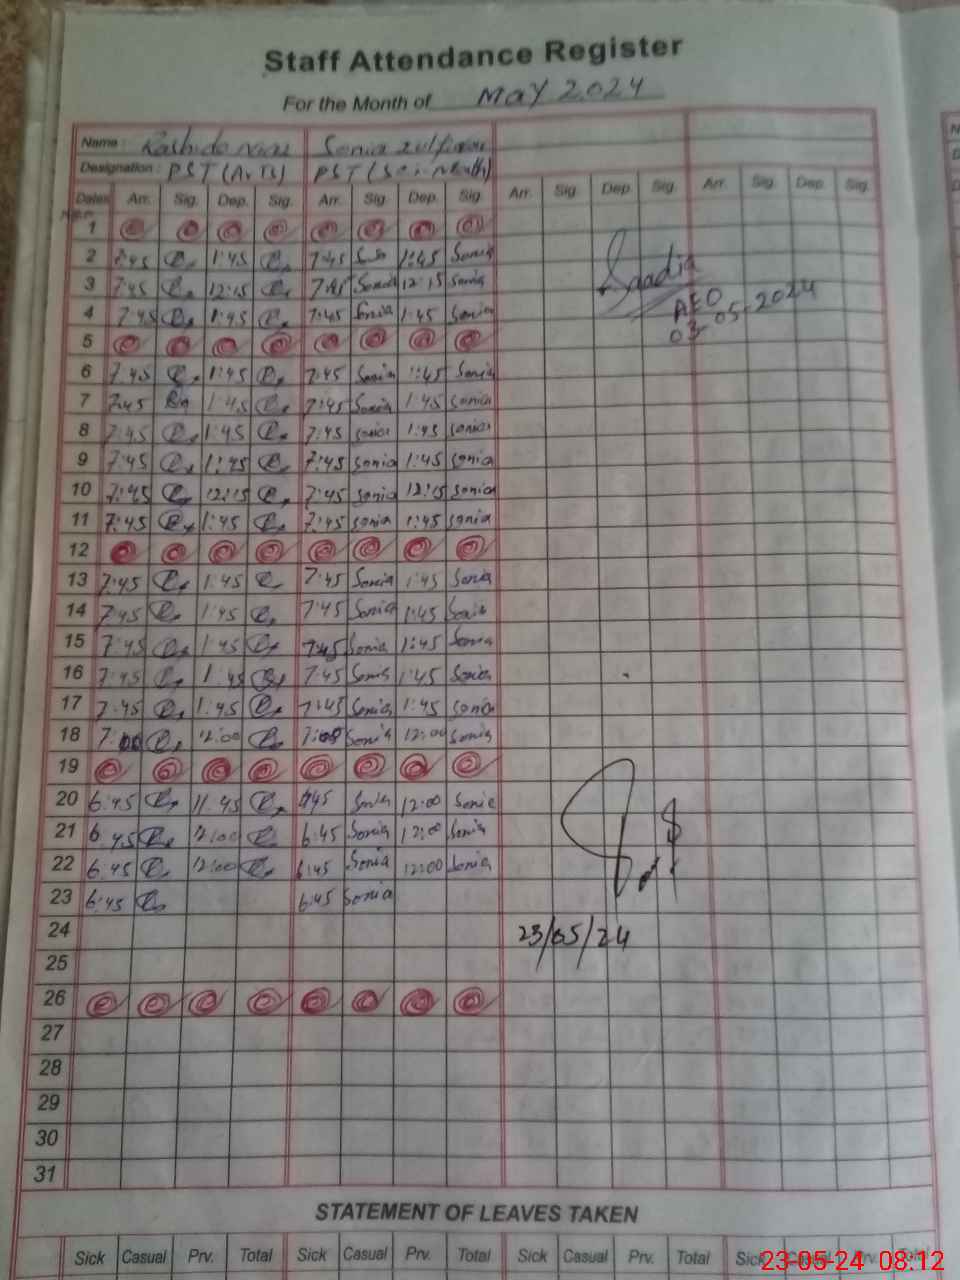 Staff Attendance Register
For the Month of May 2024
Name : Rashida Niaz Sonia Zulfiqar
Designation : PST (Arts) PST (Sci-Math)
Dates Arr. Sig. Dep. Sig. Arr. Sig. Dep. Sig. Arr. Sig. Dep. Sig. Arr. Sig. Dep. Sig.
1
2 7:45 1:45 7:45 1:45 Sonia
3 7:45 12:15 7:45 Sonia 12:15 Sonia
Saadia
AEO
03-05-2024
4 7:45 1:45 7:45 Sonia 1:45 Sonia
5
6 7:45 1:45 7:45 Sonia 1:45 Sonia
7 7:45 1:45 7:45 Sonia 1:45 Sonia
8 7:45 1:45 7:45 Sonia 1:45 Sonia
9 7:45 1:45 7:45 Sonia 1:45 Sonia
10 7:45 12:15 7:45 Sonia 12:15 Sonia
11 7:45 1:45 7:45 Sonia 1:45 Sonia
12
13 7:45 1:45 7:45 Sonia 1:45 Sonia
14 7:45 1:45 7:45 Sonia 1:45 Sonia
15 7:45 1:45 7:45 Sonia 1:45 Sonia
16 7:45 1:45 7:45 Sonia 1:45 Sonia
17 7:45 1:45 7:45 Sonia 1:45 Sonia
18 7:00 12:00 Sonia 12:00 Sonia
19
20 6:45 11:45 Sonia 12:00 Sonia
21 6:45 12:00 6:45 Sonia 12:00 Sonia
22 6:45 12:00 6:45 Sonia 12:00 Sonia
23 6:45 6:45 Sonia
24 23/05/24
25
26
27
28
29
30
31
STATEMENT OF LEAVES TAKEN
Sick Casual Prv. Total Sick Casual Prv. Total Sick Casual Prv. Total Sick Casual Prv. Total
23-05-24 08:12